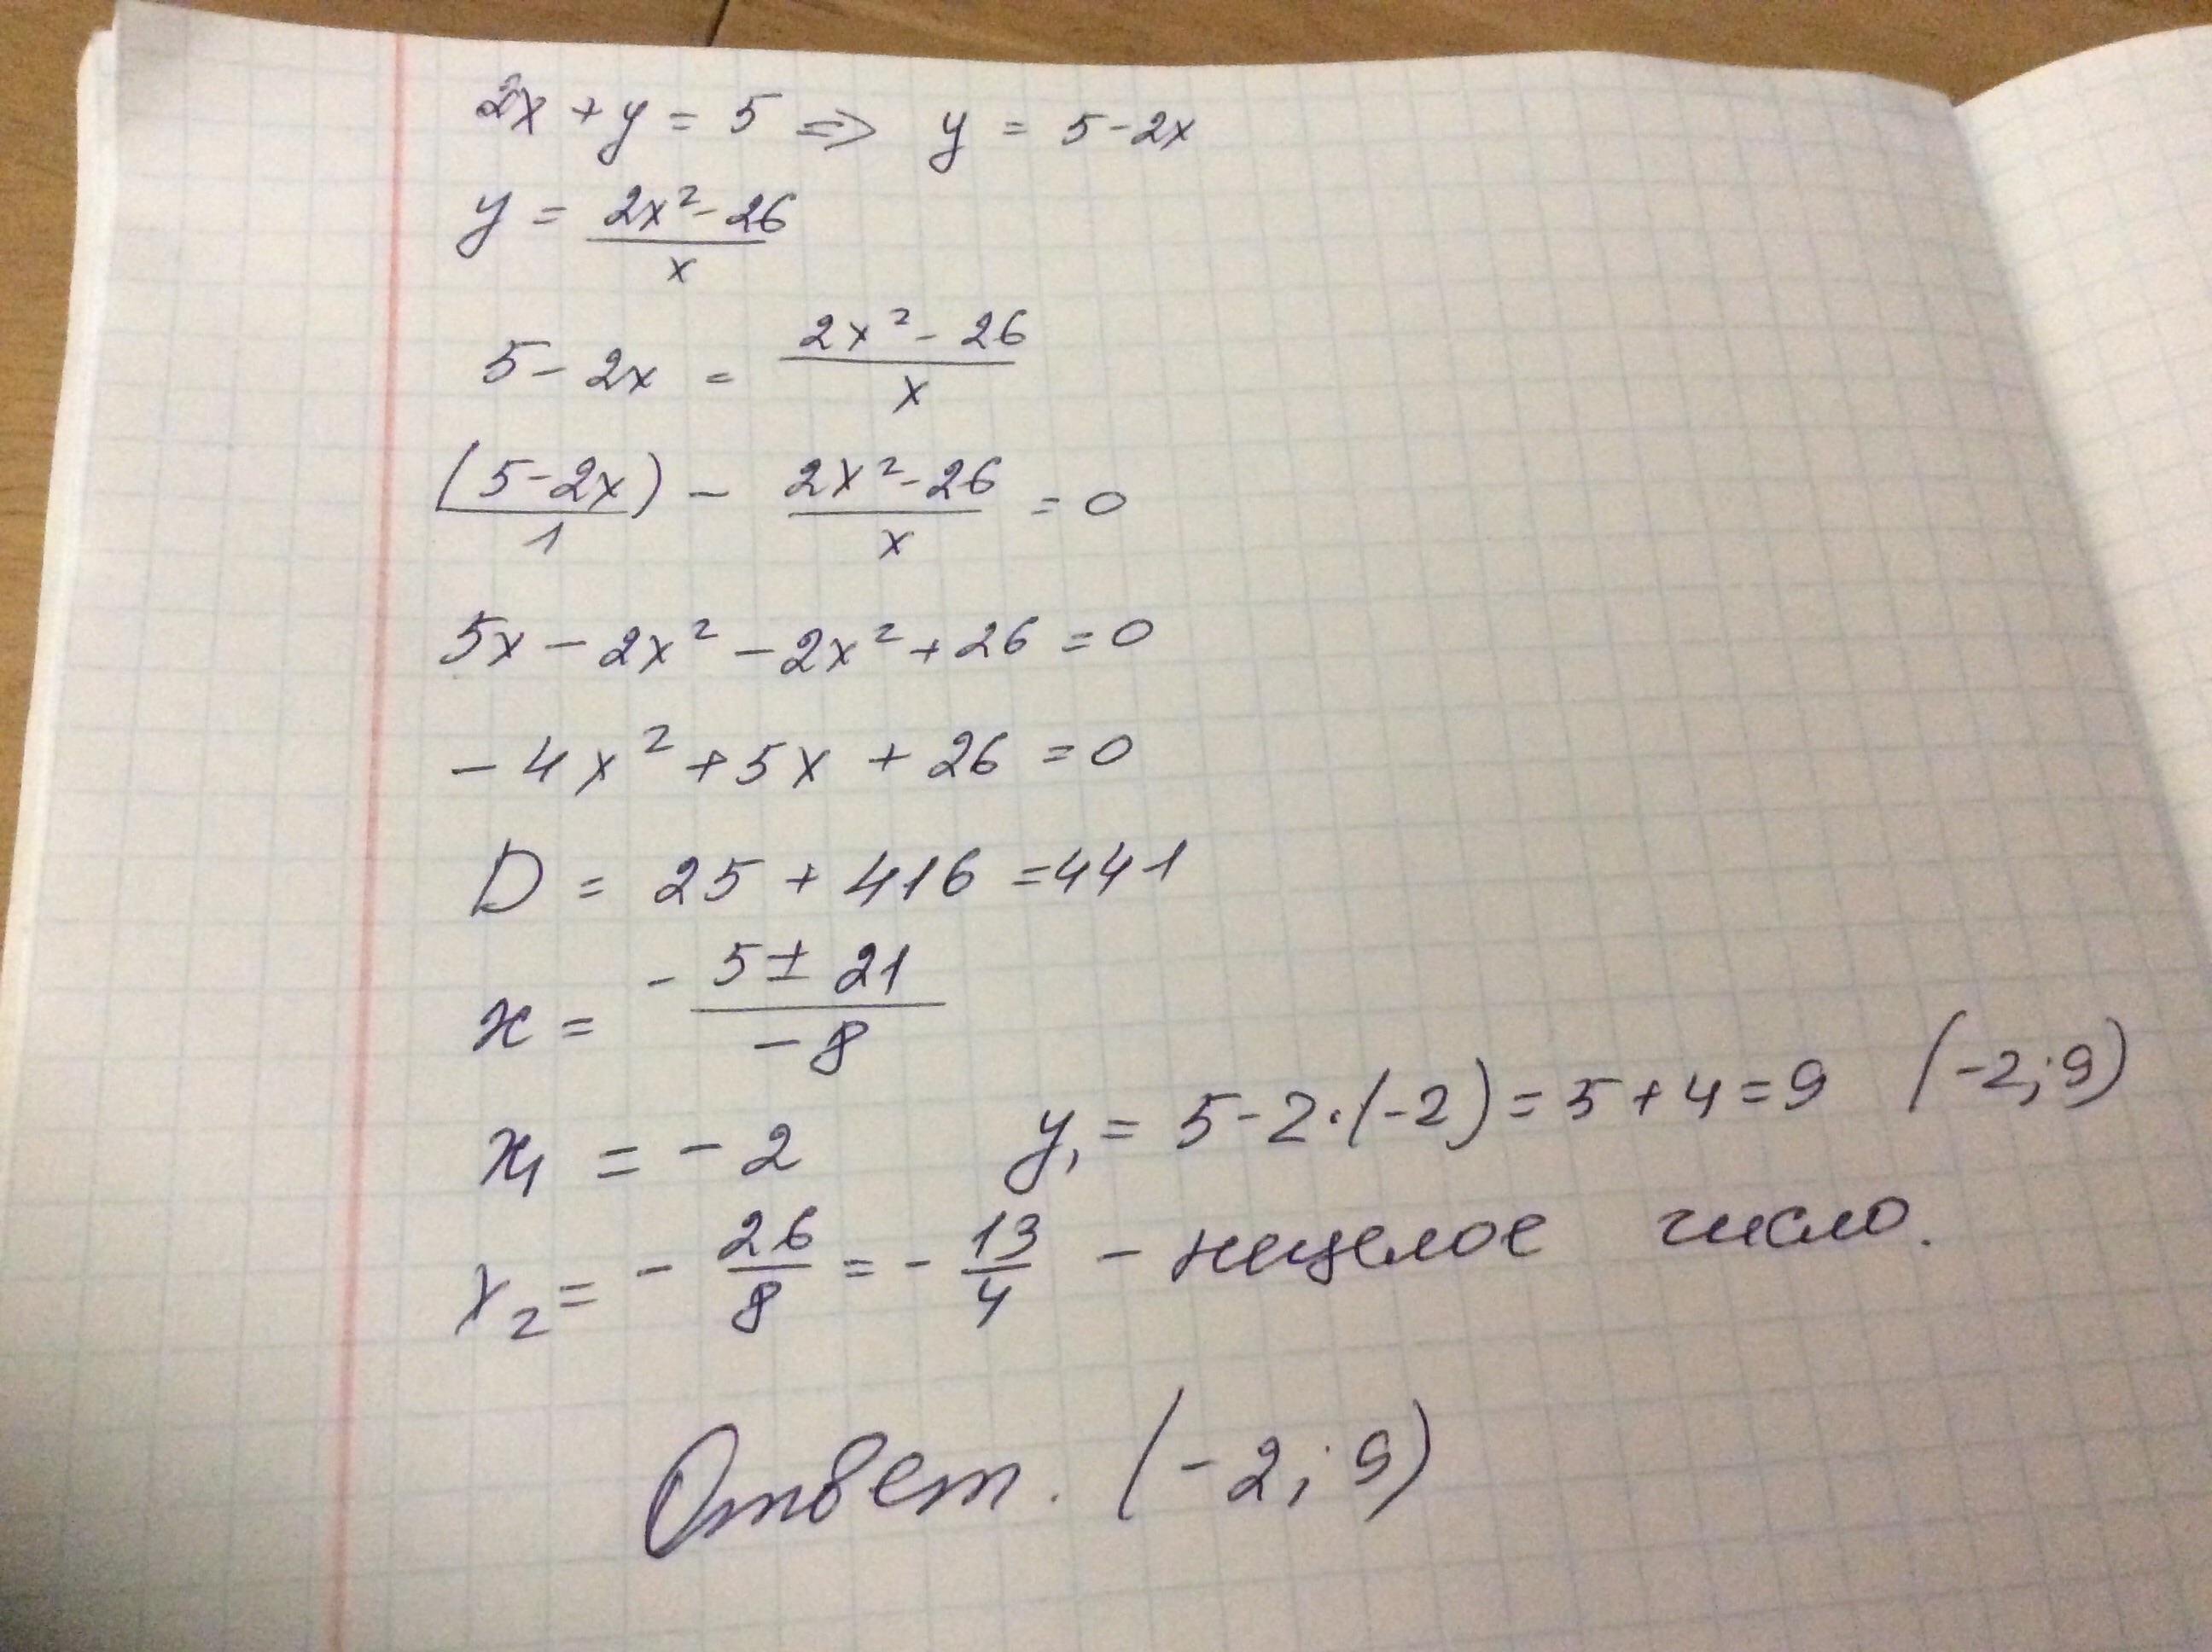 2x + y = 5 => y = 5 - 2x
y = (2x² - 26)/x
5 - 2x = (2x² - 26)/x
(5 - 2x)/1 - (2x² - 26)/x = 0
5x - 2x² - 2x² + 26 = 0
- 4x² + 5x + 26 = 0
D = 25 + 416 = 441
x = (-5 ± 21)/(-8)
x₁ = - 2 y₁ = 5 - 2·(-2) = 5 + 4 = 9 (-2; 9)
x₂ = - 26/8 = - 13/4 - нецелое число.
Ответ. (-2; 9)